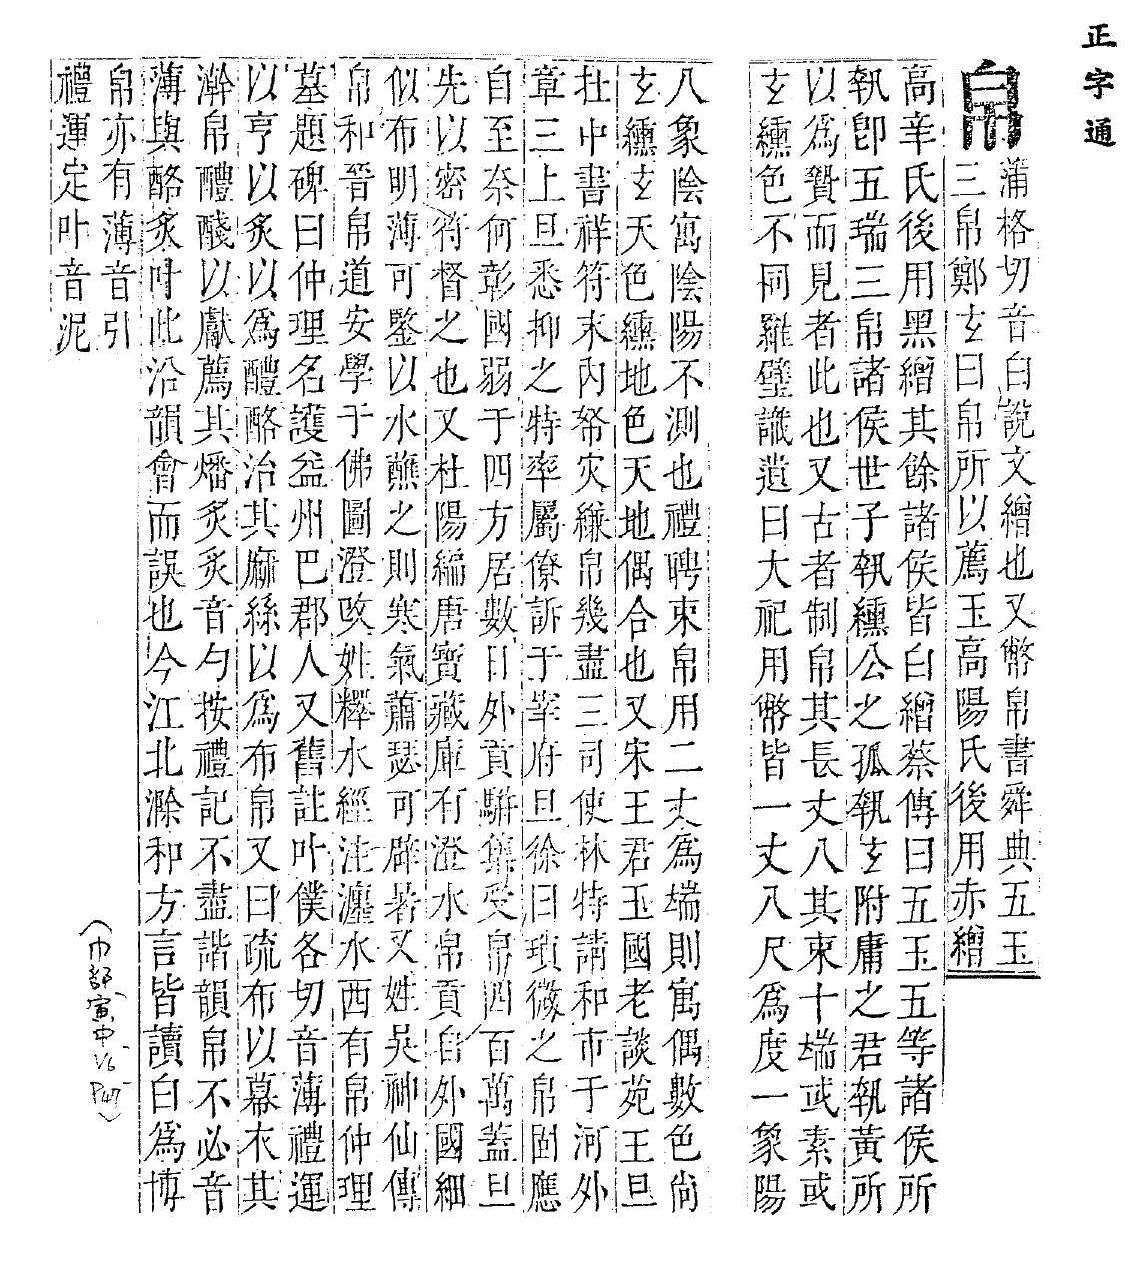 正字通
帛
蒲格切音白說文繒也又幣帛書舜典五玉
三帛鄭玄曰帛所以薦玉高陽氏後用赤繒
高辛氏後用黑繒其餘諸侯皆白繒蔡傳曰五玉五等諸侯所
執卽五瑞三帛諸侯世子執纁公之孤執玄附庸之君執黃所
以為贄而見者此也又古者制帛其長丈八其束十端或素或
玄纁色不同羅璧識遺曰大祀用幣皆一丈八尺為度一象陽
八象陰寓陰陽不測也禮聘束帛用二丈為端則寓偶數色尙
玄纁玄天色纁地色天地偶合也又宋王君玉國老談苑王旦
在中書祥符末內帑灾縑帛幾盡三司使林特請和市于河外
章三上旦悉抑之特率屬僚訴于宰府旦徐曰瑣微之帛固應
自至奈何彰國弱于四方居數日外貢駢集受帛四百萬蓋旦
先以密符督之也又杜陽編唐寳藏庫有澄水帛貢自外國細
似布明薄可鑒以水蘸之則寒氣蕭瑟可辟暑又姓吳神仙傳
帛和晉帛道安學于佛圖澄改姓釋水經注瀍水西有帛仲理
墓題碑曰仲理名護益州巴郡人又舊註叶僕各切音薄禮運
以亨以炙以為醴酪治其麻絲以為布帛又曰疏布以幕衣其
澣帛醴醆以獻薦其燔炙炙音勺按禮記不盡諧韻帛不必音
薄與酪炙叶此沿韻會而誤也今江北滁和方言皆讀白為博
帛亦有薄音引
禮運定叶音泥
(巾部寅中